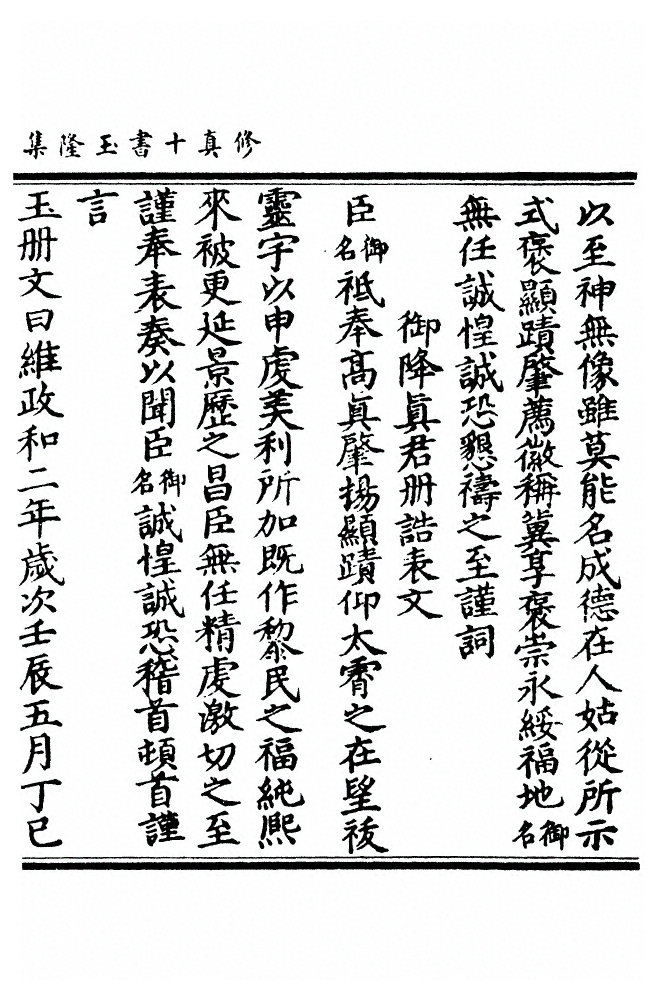 修真十書玉隆集
以至神無像雖莫能名成德在人姑從所示
式褒顯蹟肇薦徽稱冀享褒崇永綏福地御名
無任誠惶誠恐懇禱之至謹詞
御降眞君册誥表文
臣御名祗奉高眞肇揚顯蹟仰太霄之在望祓
靈字以申虔美利所加既作黎民之福純熙
來被更延景歷之昌臣無任精虔激切之至
謹奉表奏以聞臣御名誠惶誠恐稽首頓首謹
言
玉册文曰維政和二年歲次壬辰五月丁巳